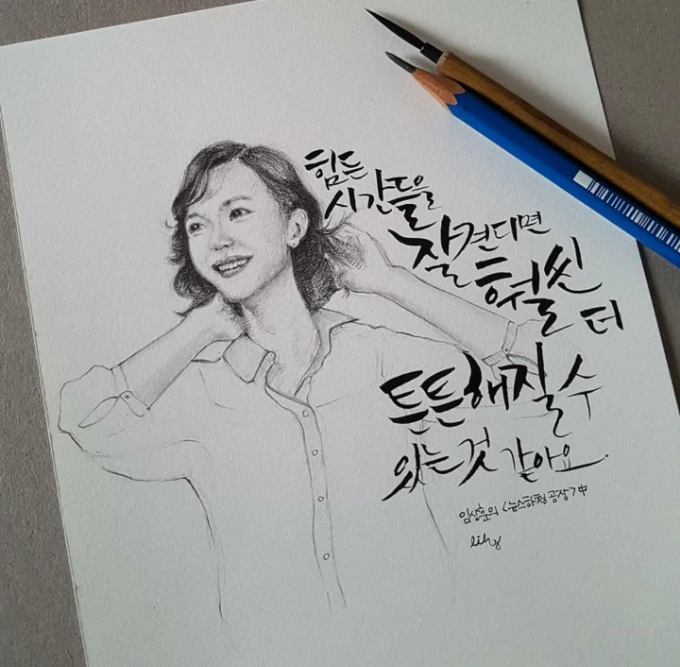 힘든
시간들을
잘 견디면
훨씬
더
튼튼해질 수
있는 것 같아요.
임상훈의 <뉴스하청공장> 中
lily